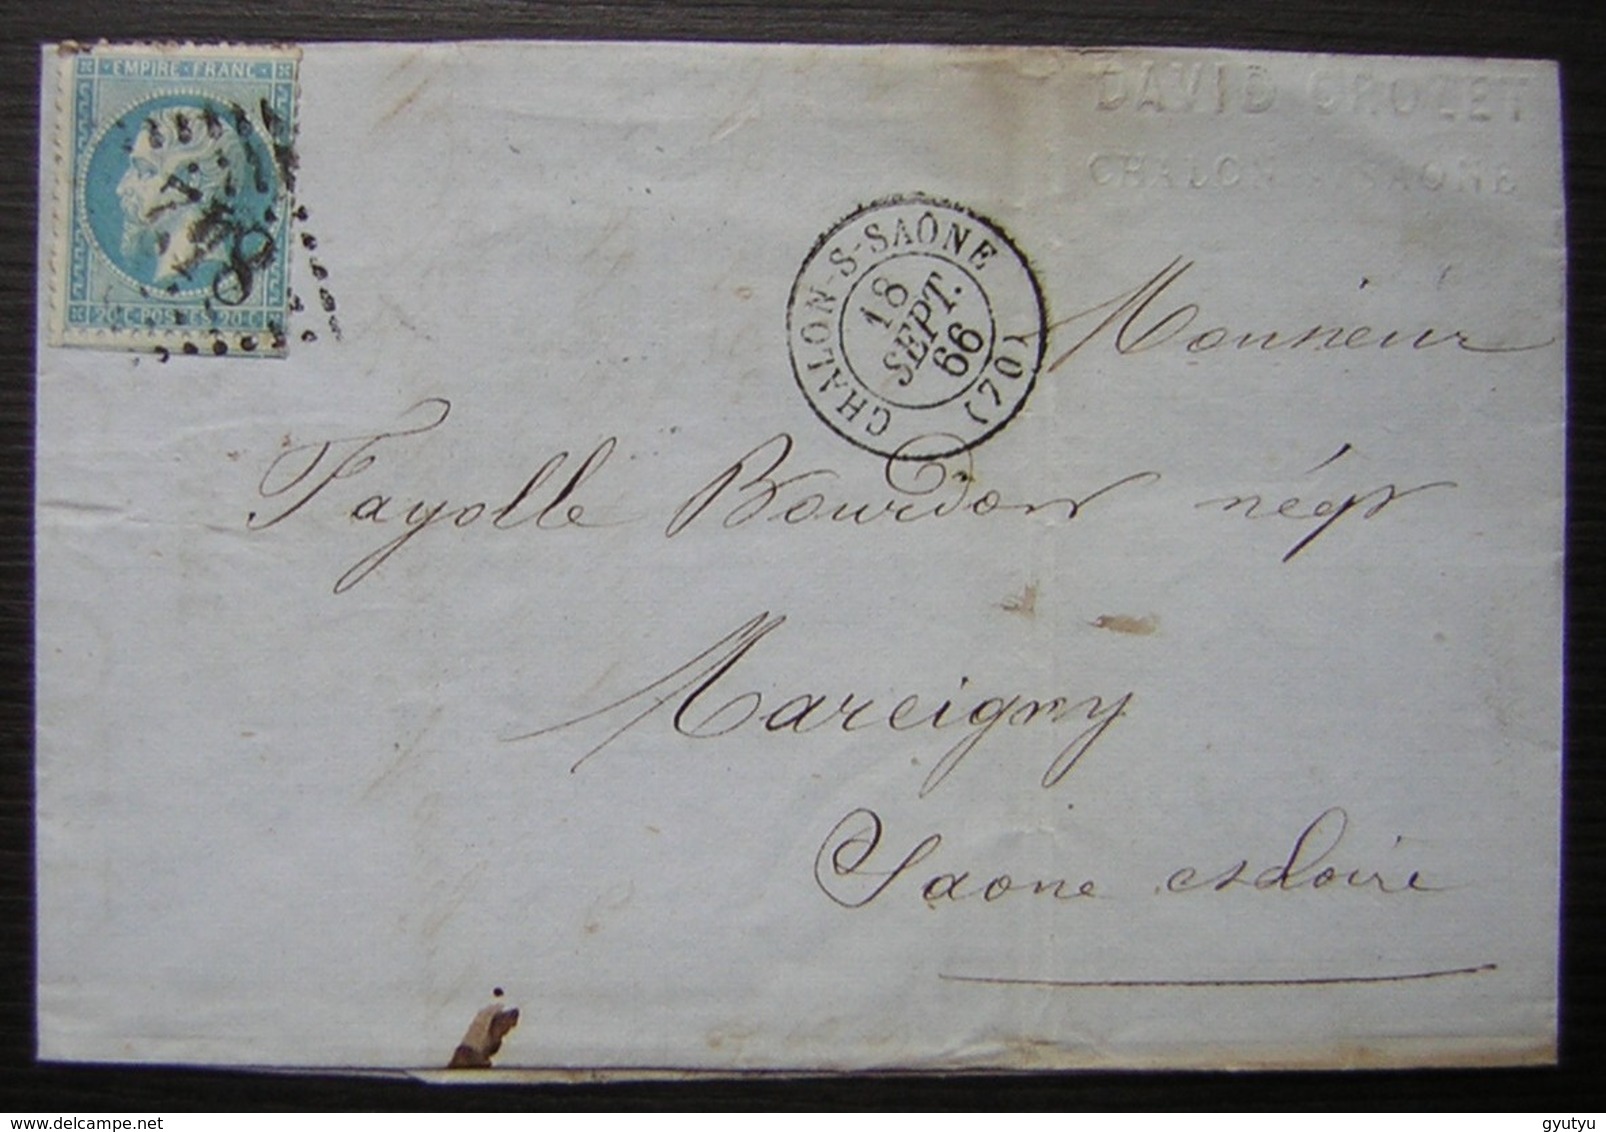 EMPIRE FRANC
20 C POSTES 20 C
DAVID CROZET
CHALON S SAONE
CHALON-S-SAONE
18
SEPT.
66
(70)
Monsieur
Fayolle Bourdon négt
Marcigny
Saone et Loire
gyutyu